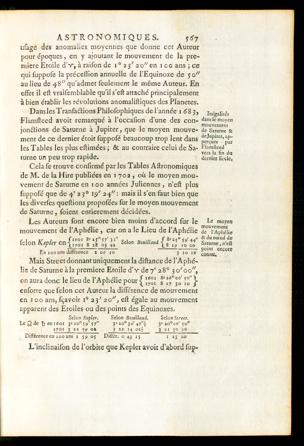 ASTRONOMIQUES. 567
usage des anomalies moyennes que donne cet Auteur
pour époques, en y ajoutant le mouvement de la pre-
miere Etoile d'♈, à raison de 1° 23′ 20″ en 100 ans; ce
qui suppose la précession annuelle de l'Equinoxe de 50″
au lieu de 48″ qu'admet seulement le même Auteur. En
effet il est vraisemblable qu'il s'est attaché principalement
à bien établir les révolutions anomalistiques des Planetes.
Dans les Transactions Philosophiques de l'année 1683,
Flamsteed avoit remarqué à l'occasion d'une des con-
jonctions de Saturne à Jupiter, que le moyen mouve-
ment de ce dernier étoit supposé beaucoup trop lent dans
les Tables les plus estimées; & au contraire celui de Sa-
turne un peu trop rapide.
Inégalités
dans le moyen
mouvement
de Saturne &
de Jupiter, ap-
perçues par
Flamsteed
vers la fin du
dernier siécle.
Cela se trouve confirmé par les Tables Astronomiques
de M. de la Hire publiées en 1702, où le moyen mou-
vement de Saturne en 100 années Juliennes, n'est plus
supposé que de 4ˢ 23° 19′ 24″: mais il s'en faut bien que
les diverses questions proposées sur le moyen mouvement
de Saturne, soient entierement décidées.
Les Auteurs sont encore bien moins d'accord sur le
mouvement de l'Aphélie, car on a le Lieu de l'Aphélie
selon Kepler en Selon Bouillaud
En 100 ans différence
Le moyen
mouvement
de l'Aphélie
& du nœud de
Saturne, n'est
point encore
connu.
Mais Street donnant uniquement la distance de l'Aphé-
lie de Saturne à la premiere Etoile d'♈ de 7ˢ 28° 50′ 00″,
on aura donc le lieu de l'Aphélie pour
ensorte que selon cet Auteur la différence de mouvement
en 100 ans, sçavoir 1° 23′ 20″, est égale au mouvement
apparent des Etoiles ou des points des Equinoxes.
Selon Kepler. Selon Bouillaud. Selon Street.
Le ☊ de ♄ en 1601
1701
Différence en 100 ans Différ.
L'inclinaison de l'orbite que Kepler avoit d'abord sup-